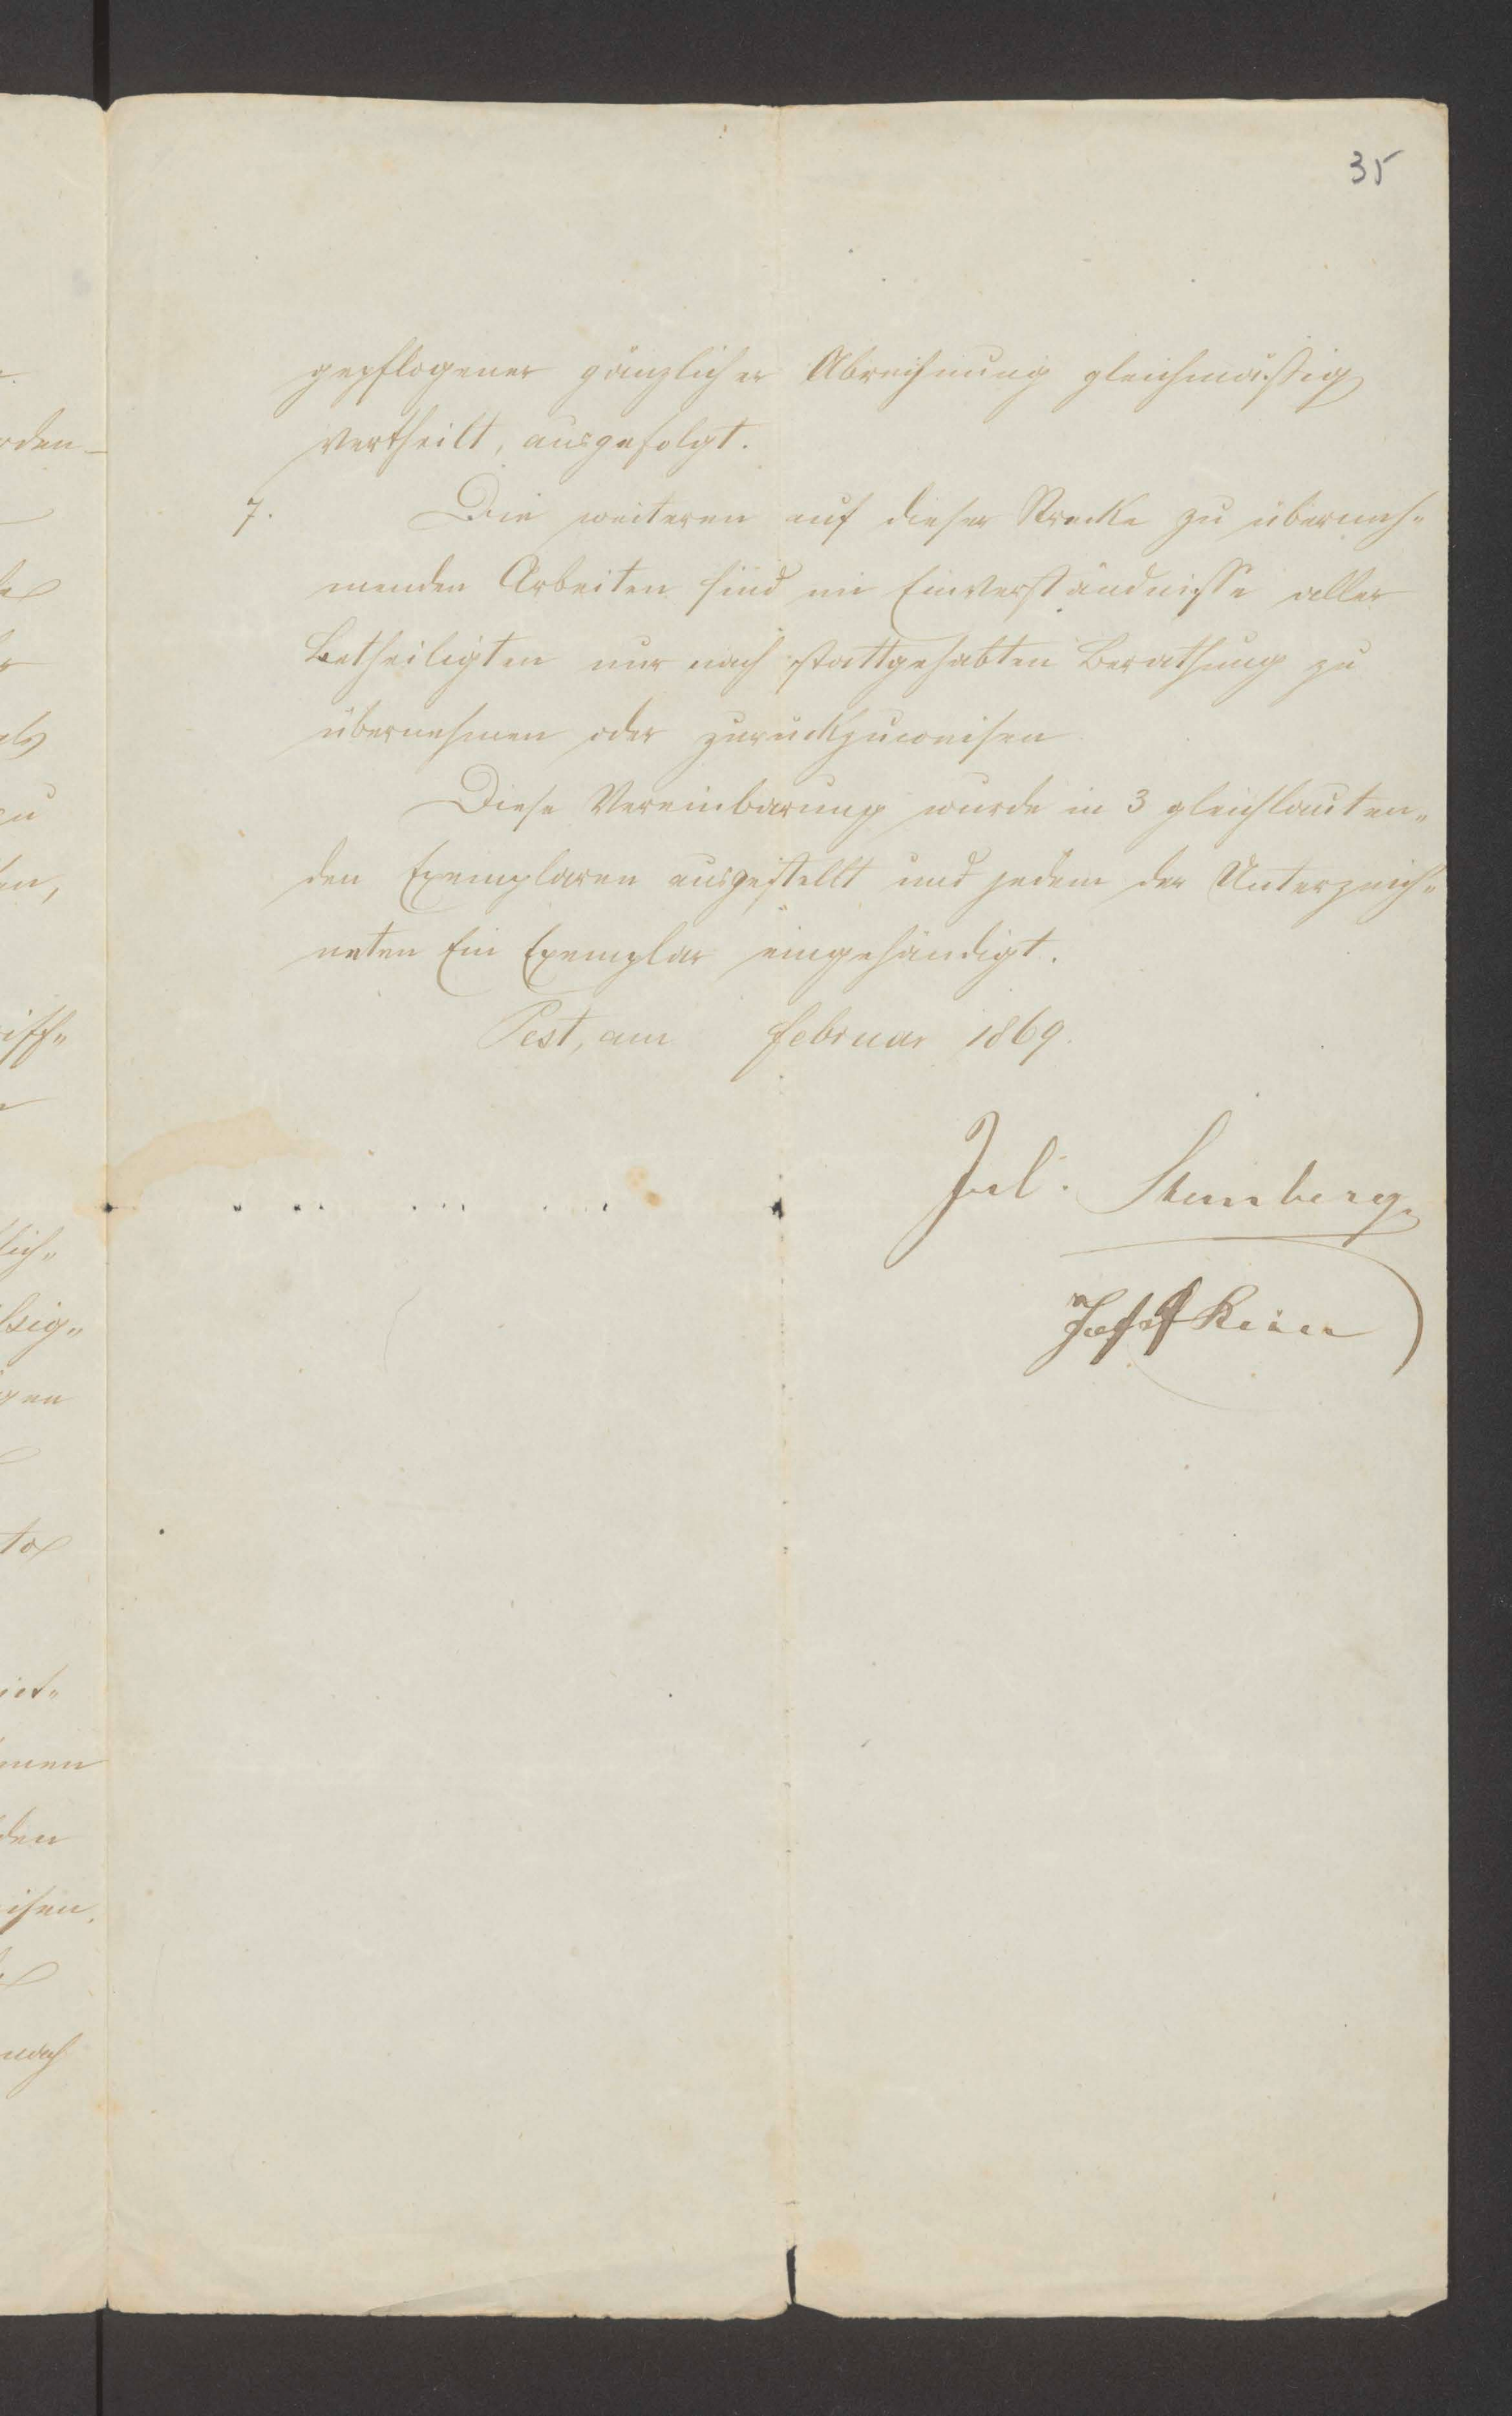 35
gepflogener gänzlicher Abrechnung gleichmäßig
vertheilt, ausgefolgt.
7. Die weiteren auf dieser Strecke zu überneh„
menden Arbeiten sind im Einverständnisse aller
Betheiligten nur nach stattgehabten Berathung zu
übernehmen oder zurückzuweisen
Diese Vereinbarung wurde in 3 gleichlauten„
den Exemplaren ausgestellt und jedem der Unterzeich„
neten Ein Exemplar eingehändigt.
Pest, am Februar 1869.
Jul. Sternberg
Josef